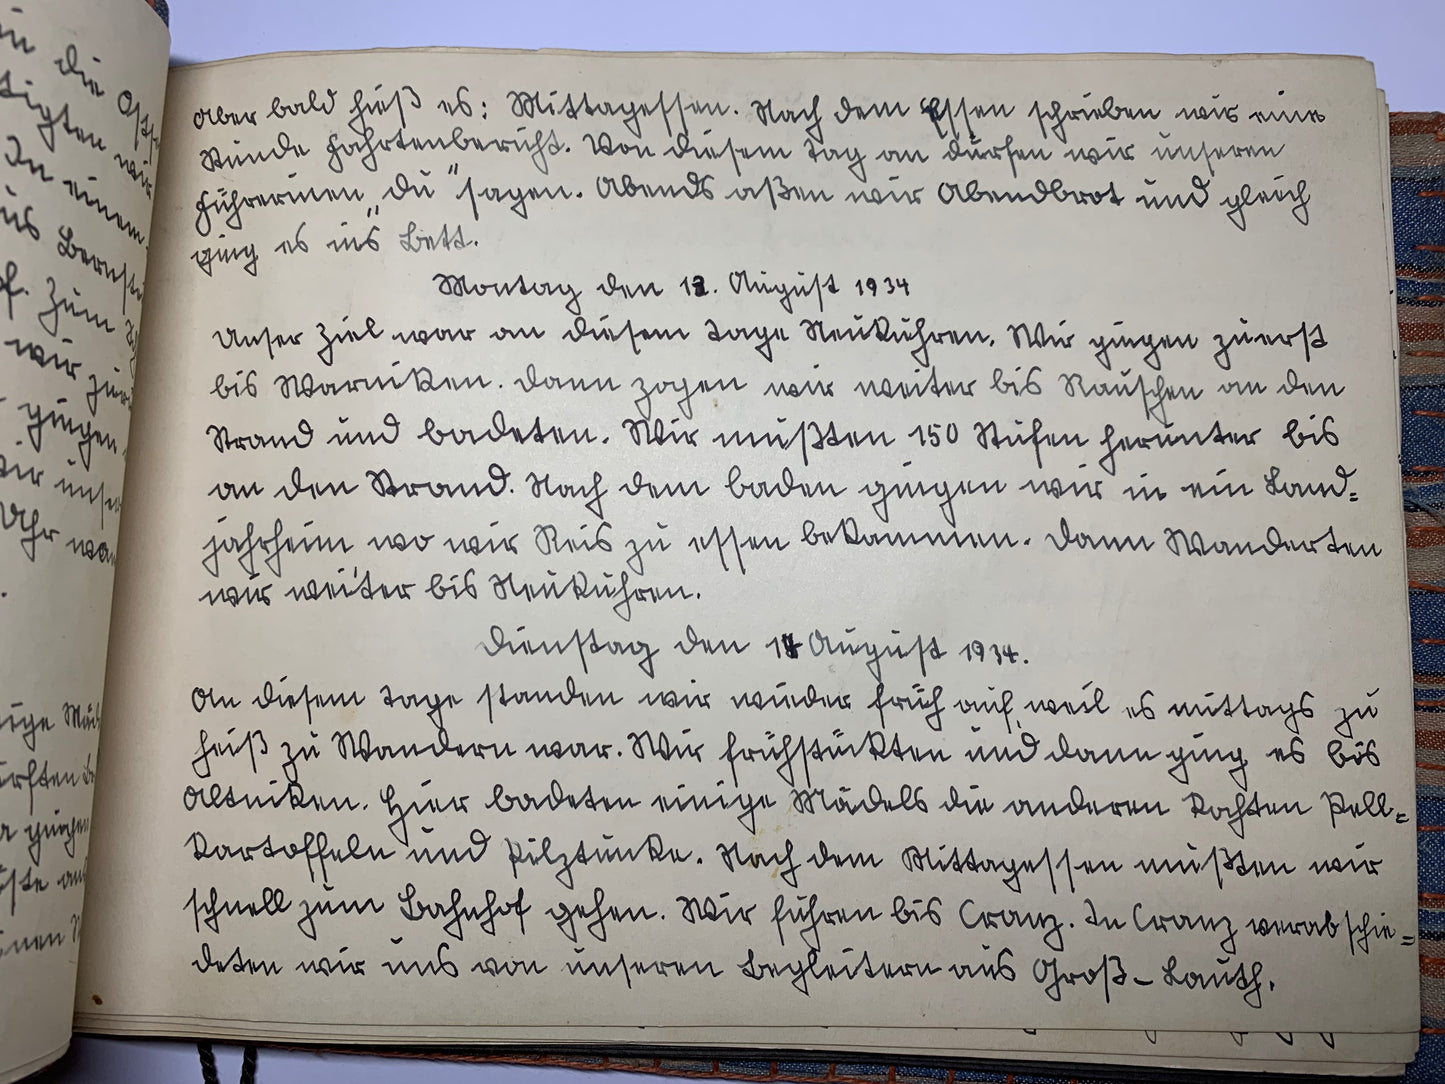 in die Ostse
tigten wir
In einem
ins Bernste
f. Zum
wir zu
gingen
wir unse
Uhr wa
ige Mäd
rften Be
a gingen
ste au
inen
Aber bald hieß es: Mittagessen. Nach dem Essen schrieben wir eine
Stunde Fahrtenbericht. Von diesem Tag an dürfen wir unseren
Führerinen „du“ sagen. Abends aßen wir Abendbrot und gleich
ging es ins Bett.
Montag den 12. August 1934
Unser Ziel war an diesem Tage Neukuhren. Wir gingen zuerst
bis Warniken. Dann zogen wir weiter bis Rauschen an den
Strand und badeten. Wir mußten 150 Stufen herunter bis
an den Strand. Nach dem baden gingen wir in ein Land=
jahrheim wo wir Reis zu essen bekammen. Dann Wanderten
wir weiter bis Neukuhren.
Dienstag den 14 August 1934.
An diesem Tage standen wir wieder früh auf, weil es mittags zu
heiß zu Wandern war. Wir frühstückten und dann ging es bis
Altniken. Hier badeten einige Mädels die anderen kochten Pell=
kartoffeln und Pilztunke. Nach dem Mittagessen mußten wir
schnell zum Bahnhof gehen. Wir fuhren bis Cranz. In Cranz verabschie=
deten wir uns von unseren Begleitern aus Groß-Lauth.